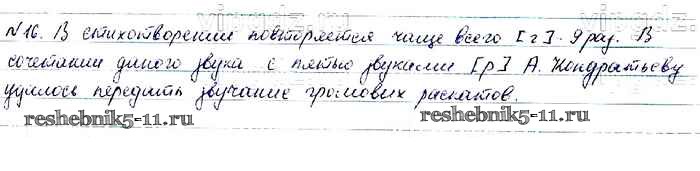 №16. В стихотворении повторяется чаще всего [г]. 9 раз. В
сочетании данного звука с пятью звуками [р] А. Кондратьеву
удалось передать звучание громовых раскатов.
reshebnik5-11.ru
reshebnik5-11.ru